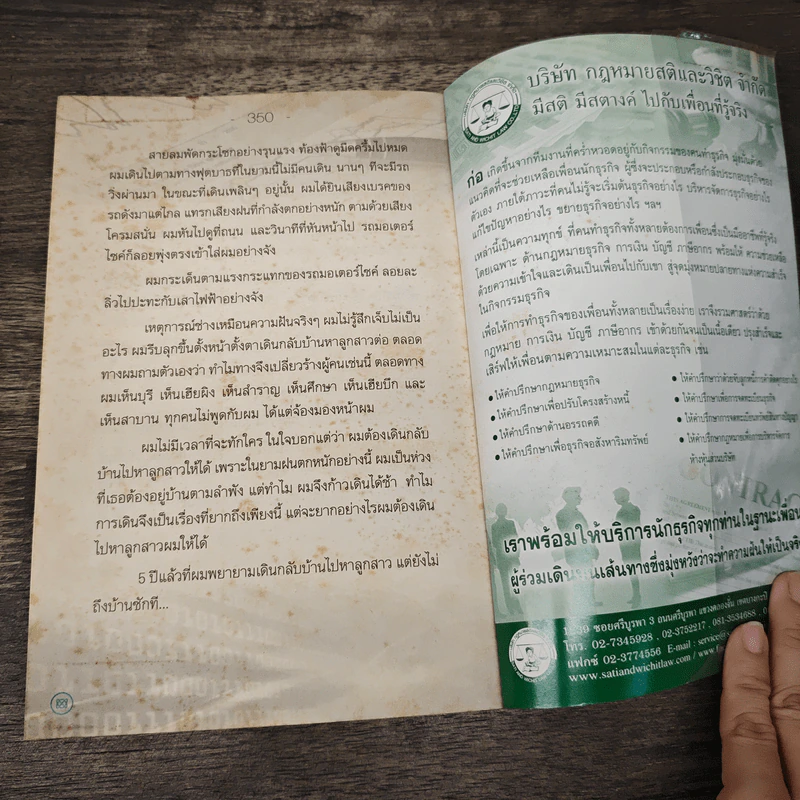 - 350 -
สายลมพัดกระโชกอย่างรุนแรง ท้องฟ้าดูมืดครึ้มไปหมด
ผมเดินไปตามทางฟุตบาธที่ในยามนี้ไม่มีคนเดิน นานๆ ทีจะมีรถ
วิ่งผ่านมา ในขณะที่เดินเพลินๆ อยู่นั้น ผมได้ยินเสียงเบรคของ
รถดังมาแต่ไกล แทรกเสียงฝนที่กำลังตกอย่างหนัก ตามด้วยเสียง
โครมสนั่น ผมหันไปดูที่ถนน และวินาทีที่หันหน้าไป รถมอเตอร์
ไซค์ก็ลอยพุ่งตรงเข้าใส่ผมอย่างจัง
ผมกระเด็นตามแรงกระแทกของรถมอเตอร์ไซค์ ลอยละ
ลิ่วไปปะทะกับเสาไฟฟ้าอย่างจัง
เหตุการณ์ช่างเหมือนความฝันจริงๆ ผมไม่รู้สึกเจ็บไม่เป็น
อะไร ผมรีบลุกขึ้นตั้งหน้าตั้งตาเดินกลับบ้านหาลูกสาวต่อ ตลอด
ทางผมถามตัวเองว่า ทำไมทางจึงเปลี่ยวร้างผู้คนเช่นนี้ ตลอดทาง
ผมเห็นบุรี เห็นเฮียผิง เห็นสำราญ เห็นศึกษา เห็นเฮียบึก และ
เห็นสาบาน ทุกคนไม่พูดกับผม ได้แต่จ้องมองหน้าผม
ผมไม่มีเวลาที่จะทักใคร ในใจบอกแต่ว่า ผมต้องเดินกลับ
บ้านไปหาลูกสาวให้ได้ เพราะในยามฝนตกหนักอย่างนี้ ผมเป็นห่วง
ที่เธอต้องอยู่บ้านตามลำพัง แต่ทำไม ผมจึงก้าวเดินได้ช้า ทำไม
การเดินจึงเป็นเรื่องที่ยากถึงเพียงนี้ แต่จะยากอย่างไรผมต้องเดิน
ไปหาลูกสาวผมให้ได้
5 ปีแล้วที่ผมพยายามเดินกลับบ้านไปหาลูกสาว แต่ยังไม่
ถึงบ้านซักที...
บริษัท กฎหมายสติและวิชิต จำกัด
มีสติ มีสตางค์ ไปกับเพื่อนที่รู้จริง
ก่อ เกิดขึ้นจากทีมงานที่คร่ำหวอดอยู่กับกิจกรรมของคนทำธุรกิจ มุ่งมั่นด้วย
แนวคิดที่จะช่วยเหลือเพื่อนนักธุรกิจ ผู้ซึ่งจะประกอบหรือกำลังประกอบธุรกิจของ
ตัวเอง ภายใต้ภาวะที่คนไม่รู้จะเริ่มต้นธุรกิจอย่างไร บริหารจัดการธุรกิจอย่างไร
แก้ไขปัญหาอย่างไร ขยายธุรกิจอย่างไร ฯลฯ
เหล่านี้เป็นความทุกข์ ที่คนทำธุรกิจทั้งหลายต้องการเพื่อนซึ่งเป็นมืออาชีพที่รู้จริง
โดยเฉพาะ ด้านกฎหมายธุรกิจ การเงิน บัญชี ภาษีอากร พร้อมให้ ความช่วยเหลือ
ด้วยความเข้าใจและเดินเป็นเพื่อนไปกับเขา สู่จุดมุ่งหมายปลายทางแห่งความสำเร็จ
ในกิจกรรมธุรกิจ
เพื่อให้การทำธุรกิจของเพื่อนทั้งหลายเป็นเรื่องง่าย เราจึงรวมศาสตร์ว่าด้วย
กฎหมาย การเงิน บัญชี ภาษีอากร เข้าด้วยกันจนเป็นเนื้อเดียว ปรุงสำเร็จและ
เสิร์ฟให้เพื่อนตามความเหมาะสมในแต่ละธุรกิจ เช่น
• ให้คำปรึกษากฎหมายธุรกิจ
• ให้คำปรึกษาเพื่อปรับโครงสร้างหนี้
• ให้คำปรึกษาด้านอรรถคดี
• ให้คำปรึกษาเพื่อธุรกิจอสังหาริมทรัพย์
• ให้คำปรึกษาเพื่อการจดทะเบียนธุรกิจ
ห้างหุ้นส่วนบริษัท
เราพร้อมให้บริการนักธุรกิจทุกท่านในฐานะเพื่อน
ผู้ร่วมเดินบนเส้นทางซึ่งมุ่งหวังว่าจะทำความฝันให้เป็นจริง
ซอยศรีบูรพา 3 ถนนศรีบูรพา แขวงคลองจั่น เขตบางกะปิ
โทร. 02-7345928 , 02-3752217 , 081-3534688
แฟกซ์ 02-3774556 E-mail : service@
www.satiandwichitlaw.com